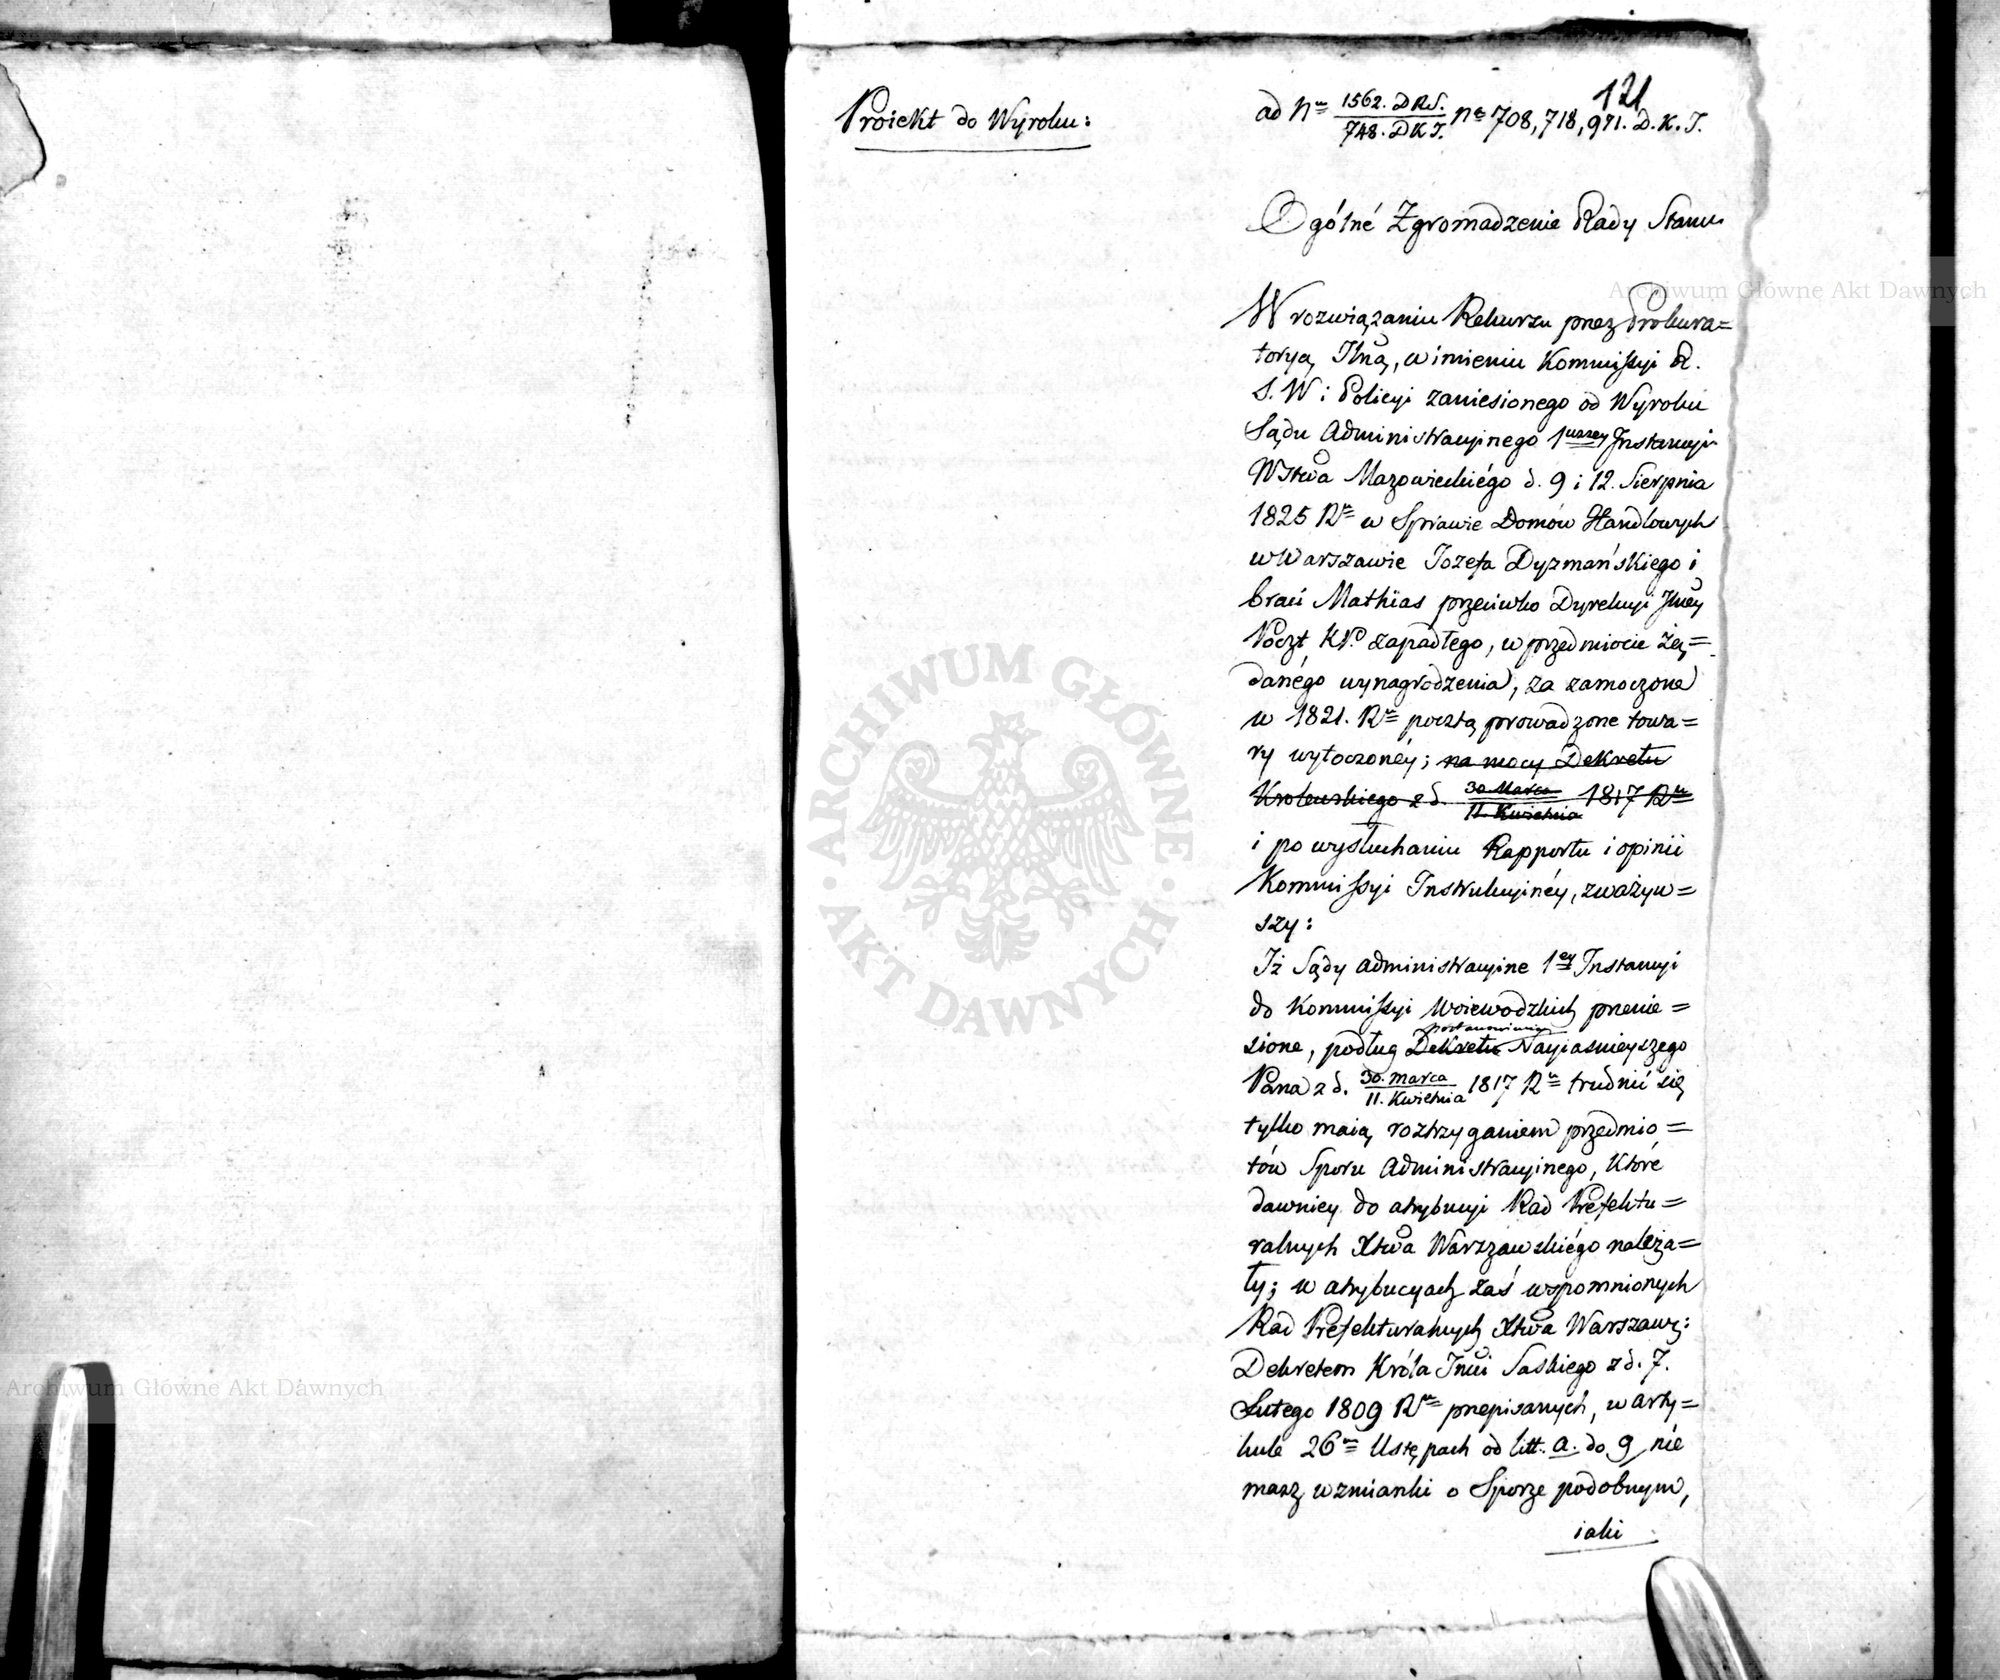 121
Proiekt do Wyroku:
ad Nm 1562. DRS. / 748. DKJ. Ne 708, 718, 971. D. K. J.
Ogólné Zgromadzenie Rady Stanu
W rozwiązaniu Rekursu przez Prokura=
toryą Jlną, w imieniu Kommissyi R.
S. W i Policyi zaniesionego od Wyroku
Sądu Administracyinego 1wszey Instancyi
Wztwa Mazowieckiégo d. 9 i 12. Sierpnia
1825 Ru w Sprawie Domów Handlowych
w Warszawie Jozefa Dyzmańskiego i
braci Mathias przeciwko Dyrekcyi Jlney
Poczt KP. zapadłego, w przedmiocie żą=
danégo wynagrodzenia, za zamoczone
w 1821. Ru pocztą prowadzone towa=
ry wytoczonéy; na mocy Dekretu
Krolewskiego z d. 30 Marca / 11. Kwietnia 1817 Ru
i po wysłuchaniu Rapportu i opinii
Kommissyi Instrukcyinéy, zważyw=
szy:
Iż Sądy administracyine 1ey Instancyi
do Kommissyi Woiewodzkich przenie=
postanowienia
sione, podług Dekretu Nayiaśnieyszego
Pana z d. 30. Marca / 11. Kwietnia 1817 Ru trudnić się
tylko maią roztrzyganiem przedmio=
tów Sporu Administracyinego, Które
dawniey do atrybucyi Rad Prefektu=
ralnych Xtwa Warszawskiégo należa=
ły; w atrybucyach zaś wspomnionych
Rad Prefekturalnych Xtwa Warszaw:
Dekretem Króla Jmci Saskiego z d. 7.
Lutego 1809 Ru przepisanych, w arty=
kule 26m Ustępach od litt. a. do g nie
masz wzmianki o Sporze podobnym,
iaki
Archiwum Główne Akt Dawnych
ARCHIWUM GŁÓWNE
AKT DAWNYCH
Archiwum Główne Akt Dawnych